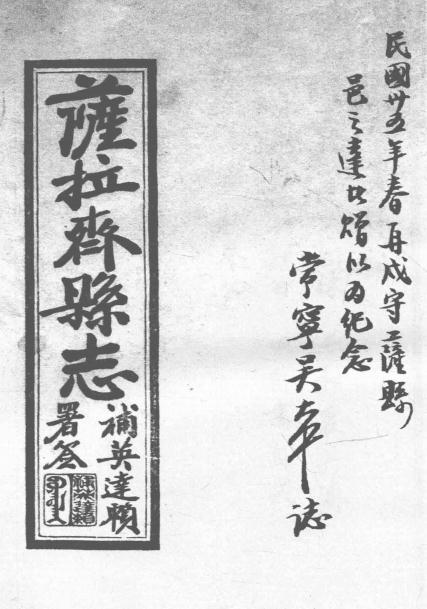 民國卅五年春再戍守薩縣
邑之達贈以为紀念
常寧吳誌
薩拉齊縣志
補英達賴
署签